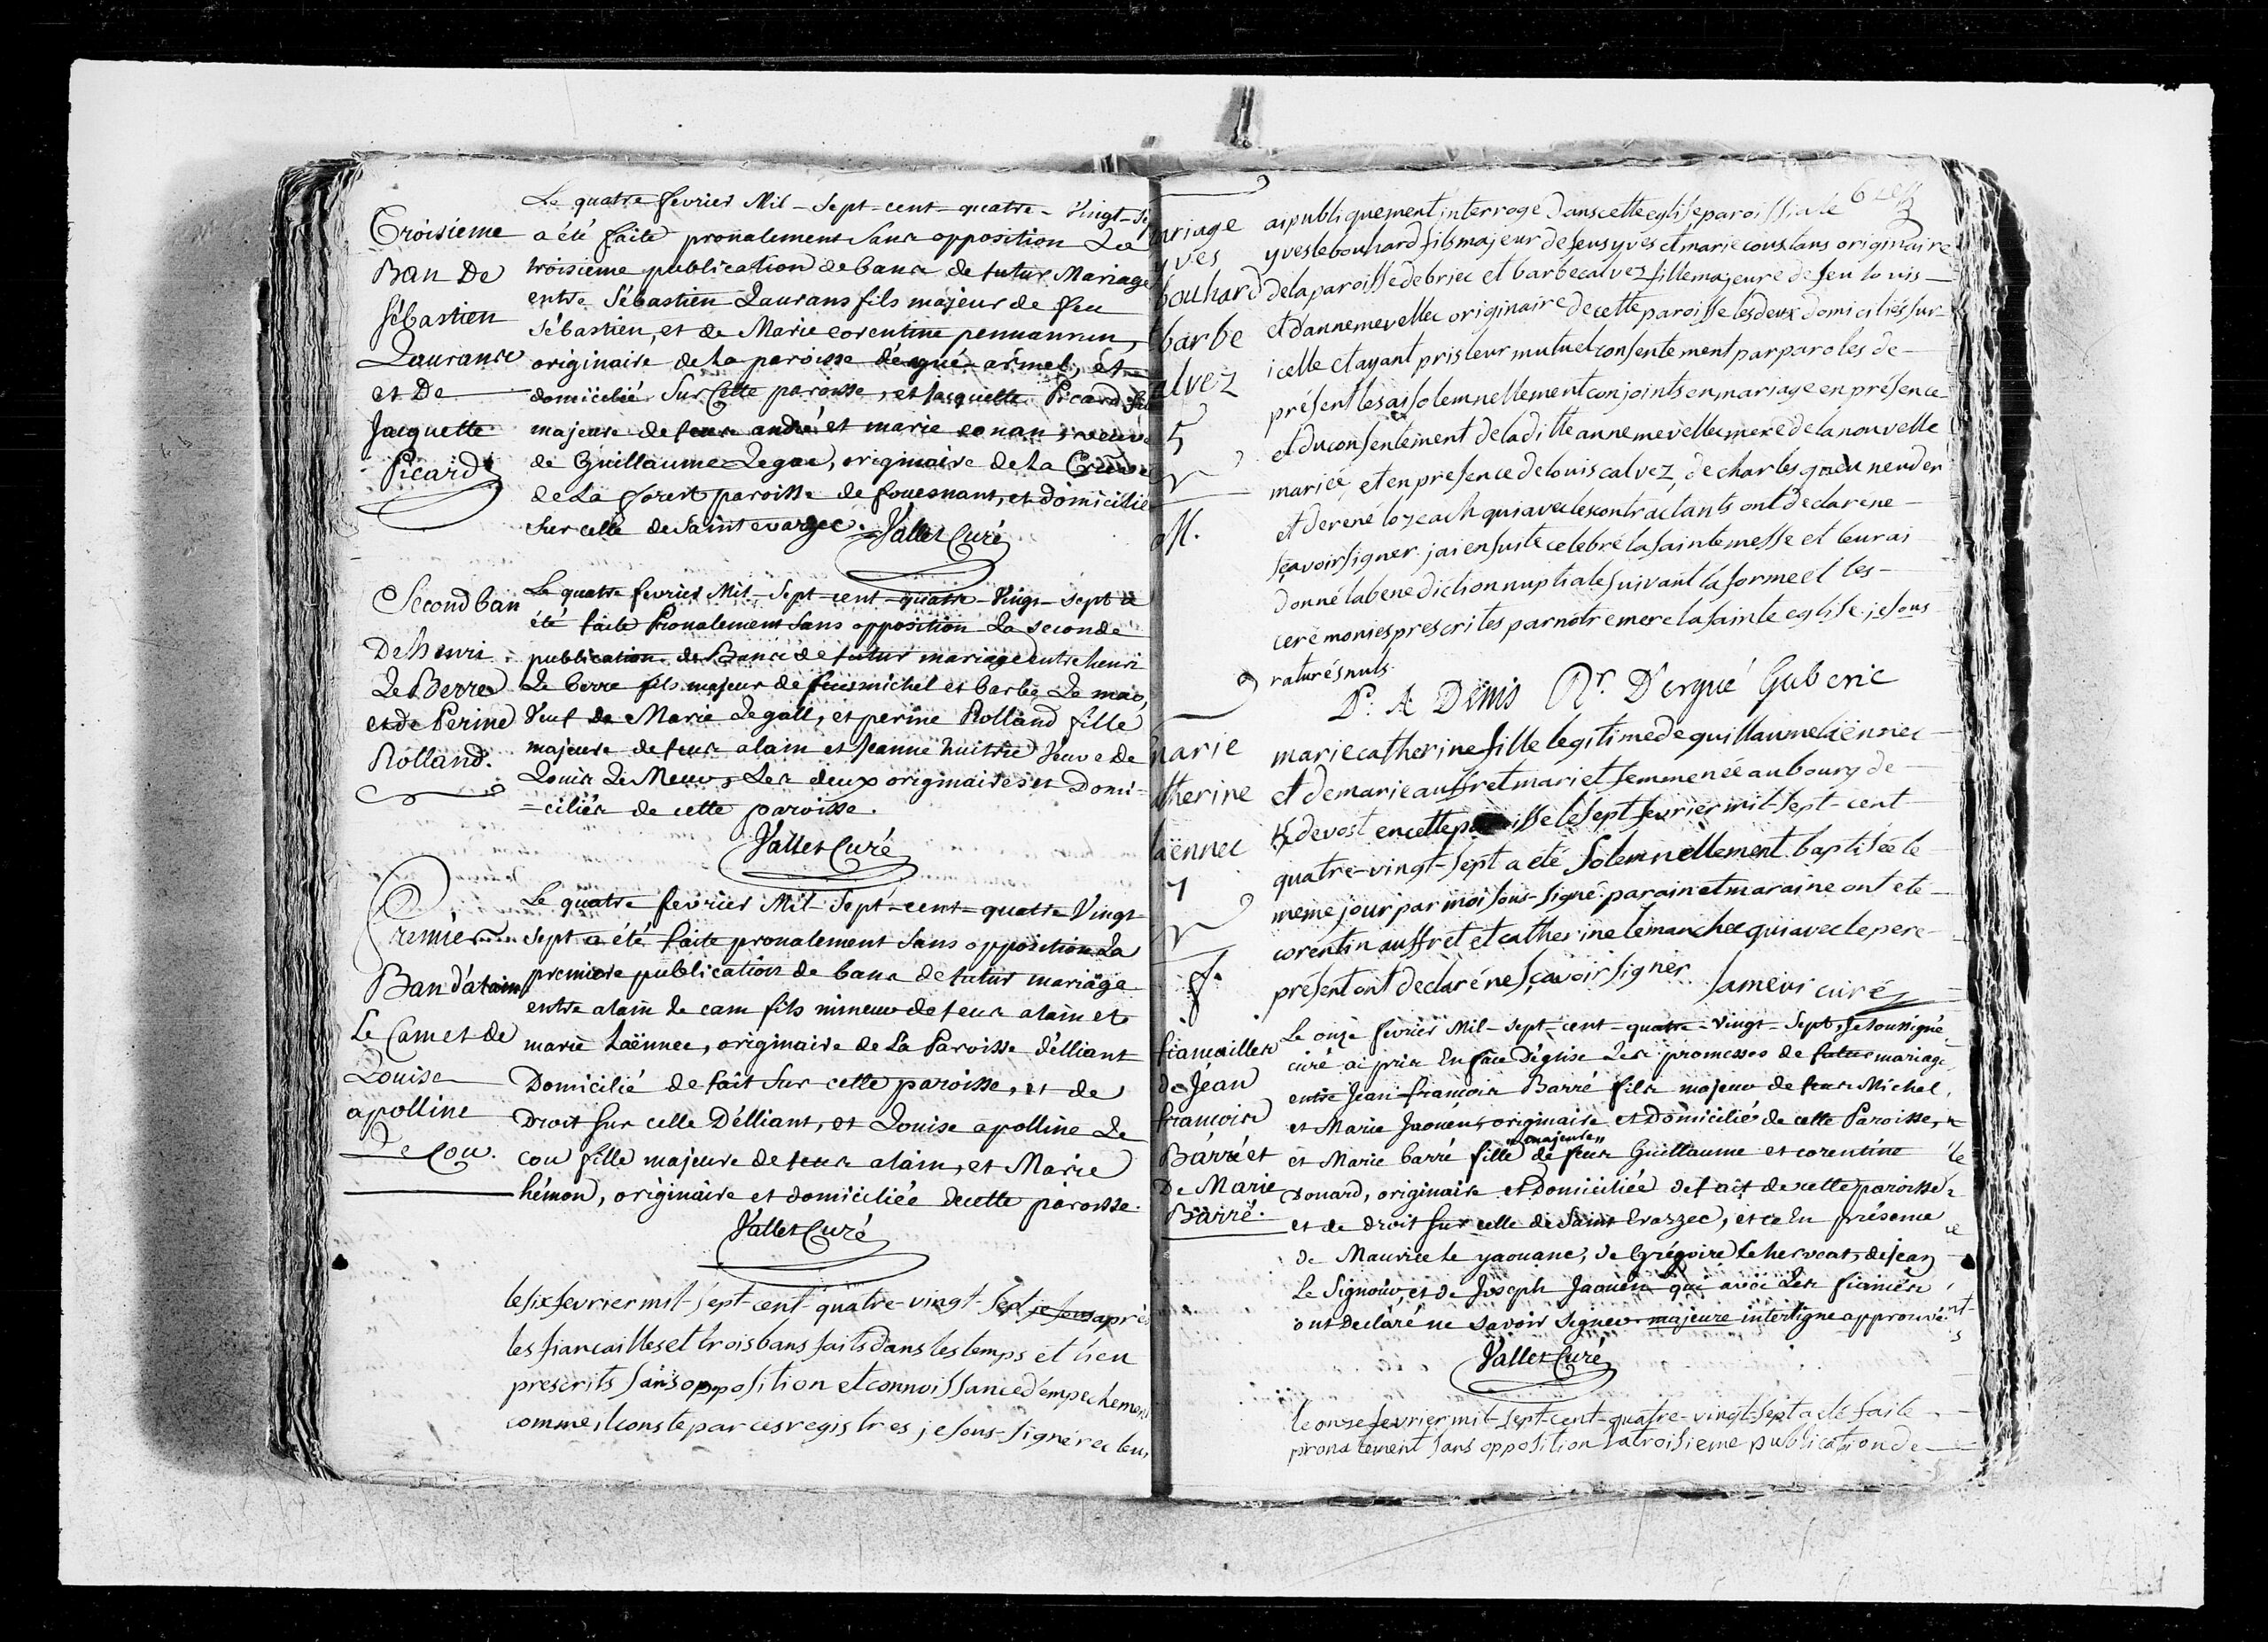 Troisieme
Ban De
Sébastien
Laurance
et De
Jacquette
Picard
Le quatre fevrier Mil-Sept-cent-quatre-Vingt-
a été faite pronalement Sans opposition La
troisieme publication de bans de futur Mariage
entre Sébastien Laurans fils majeur de feu
Sébastien, et de Marie corentine pennanrun,
originaire de la paroisse d'ergué-armel, et
domicilié Sur Cette paroisse, et Jacquette Picard
majeure de feus andré et marie conan, veuve
de Guillaume Legac, originaire de La
de La forest paroisse de fouesnant, et Domicilié
Sur celle de Saint evarzec. Vallet Curé
Second ban
De henri
Le Berre
et de Perine
Rolland.
Le quatre fevrier Mil-Sept-cent-quatre-Vingt-Sept a
été faite Pronalement Sans opposition La seconde
publication de Bans de futur mariage entre henri
Le berre fils majeur de feus michel et barbe Le mao,
Veuf de Marie Legall, et perine Rolland fille
majeure de feus alain et Jeanne huitric Veuve de
Louis Le Meur, Les deux originaires et Domi-
=ciliés de cette paroisse.
Vallet Curé
Premier
Ban d'alain
Le Cam et de
Louise
apolline
Le Cou.
Le quatre fevrier Mil-Sept-cent-quatre Vingt
Sept a été faite pronalement Sans opposition La
premiere publication de bans de futur mariage
entre alain Le cam fils mineur de feus alain et
marie Laënnec, originaire de La Paroisse d'élliant
Domicilié de fait Sur cette paroisse, et de
Droit Sur celle D'élliant, et Louise apolline Le
cou fille majeure de feus alain, et Marie
hémon, originaire et domiciliée de cette paroisse.
Vallet Curé
le six fevrier mil-sept-cent-quatre-vingt-sept je sous après
les fiancailles et trois bans faits dans les temps et lieu
prescrits sans opposition et connoissance d'empechement
comme il conste par ces registres, je sous-signé recteur
ariage
yves
bouhard
barbe
alvez
5
ai publiquement interrogé dans cette eglise paroissiale
yves le bouhard fils majeur de feus yves et marie coustans originaire
de la paroisse de briec et barbe calvez fille majeure de feu louis
et d'anne mevellec originaire de cette paroisse les deux domiciliés sur
icelle et ayant pris leur mutuel consentement par paroles de
présent les ai solemnellement conjoints en mariage en présence
et du consentement de la ditte anne mevellec mere de la nouvelle
mariée, et en presence de louis calvez, de charles
et de rené lozeach qui avec les contractants ont declaré ne
sçavoir signer. j'ai ensuite celebré la sainte messe et leur ai
donné la benediction nuptiale suivant la forme et les
ceremonies prescrites par notre mere la sainte eglise. je sous
raturés nuls.
Denis Rr. D'ergué Gaberic
marie
therine
laënnec
7
marie catherine fille legitime de guillaume laënnec
et de marie auffret mari et femme née au bourg de
Kdevost en cette paroisse le sept fevrier mil-sept-cent
quatre-vingt-sept a été solemnellement baptisée le
meme jour par moi sous-signé. parain et maraine ont été
corentin auffret et catherine le marchec qui avec le pere
présent ont declaré ne sçavoir signer Jameur curé
fiancailles
de Jéan
francois
Barré et
De Marie
Barré.
Le onze fevrier Mil-Sept-cent-quatre-Vingt-Sept, Je Soussigné
curé ai pris En face d'église Les promesses de futur mariage
entre Jean-françois Barré fils majeur de feus Michel,
et Marie Jaouen, originaire et Domicilié de cette Paroisse,
"majeure"
et Marie barré fille de feus Guillaume et corentine
Douard, originaire et Domiciliée de fait de cette paroisse
et de Droit Sur celle de Saint Evarzec, et ce En présence
de Maurice Le yaouanc, de Grégoire Le herveat, de jean
Le Signour, et de Joseph Jaouen qui avec Les fiancés
ont Declaré ne savoir Signer. majeure interligne approuvé
Vallet Curé
le onze fevrier mil-sept-cent-quatre-vingt-sept a été faite
pronalement sans opposition la troisieme publication de